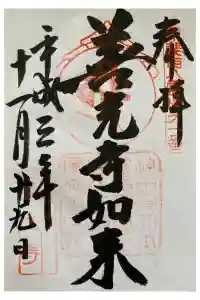 奉拝
善光寺如来
平成三年
十一月廿九日